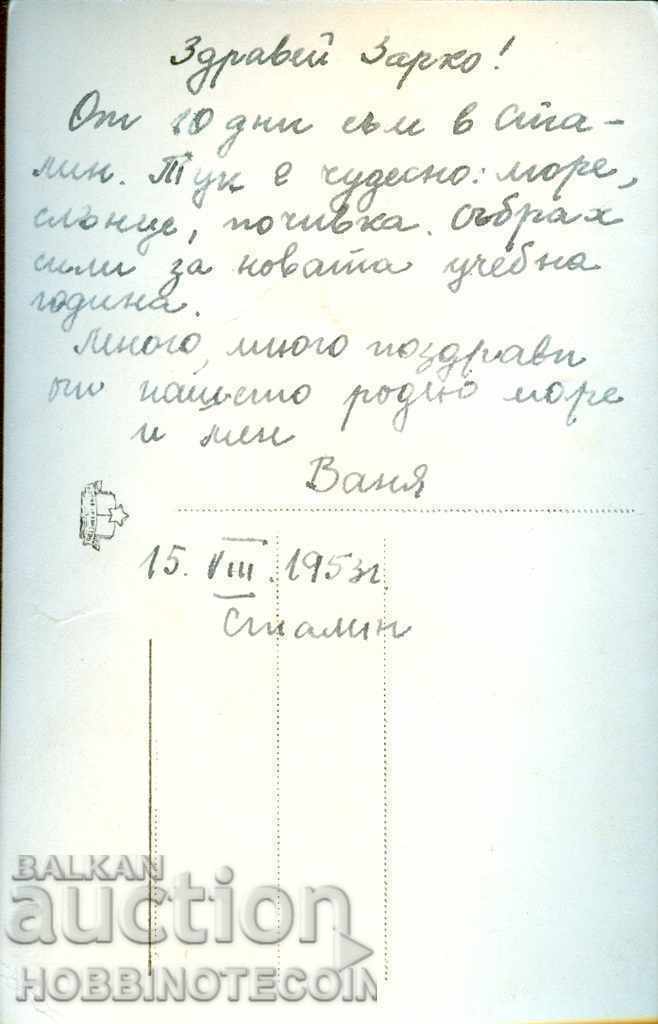 Здравей Зарко!
От 10 дни съм в Ста-
лин. Тук е чудесно: море,
слънце, почивка. Събрах
сили за новата учебна
година.
Много, много поздрави
от нашето родно море
и мен
Ваня
15. VIII. 1953г.
Сталин
BALKAN
auction
HOBBINOTECOIN